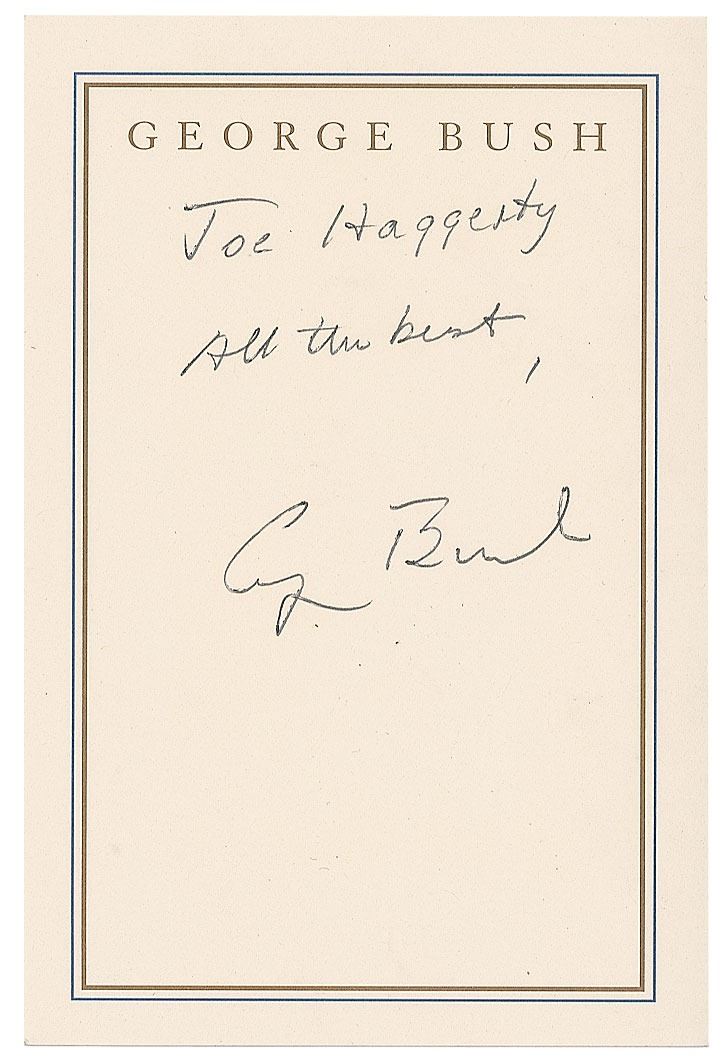 GEORGE BUSH
Joe Haggerty
All the best,
G Bush